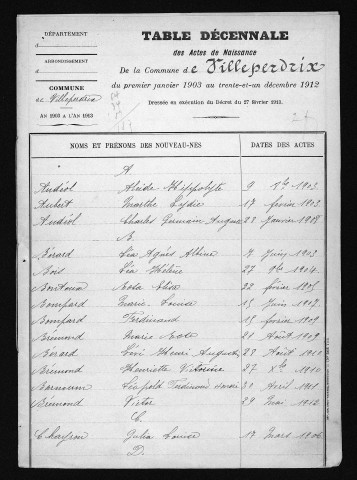 DÉPARTEMENT
d
ARRONDISSEMENT
d
COMMUNE
de Villeperdrix
AN 1903 A L'AN 1913
TABLE DÉCENNALE
des Actes de Naissance
De la Commune de Villeperdrix
du premier janvier 1903 au trente-et-un décembre 1912
Dressée en exécution du Décret du 27 février 1913.
NOMS ET PRÉNOMS DES NOUVEAU-NÉS DATES DES ACTES
A.
Audéol Hippolyte 9 1903
Aubert Marthe Lydie 17 février 1903
Audéol Charles Germain 23 janvier
B.
Bérard Léa Agnès Albine 7 juin 1903
Bois Léa Hélène 27 1904
Rosa 22 février
Bompard Marie Louise 15 juin
Bompard Ferdinand 15 février 1909
Brémond Marie 21 Août 1909
Bérard Henri 23 Août 1910
Brémond Henriette Victorine 27 Xbre 1910
Léopold Ferdinand 20 Avril 1911
Brémond Victor 29 Mai 1912
C.
Julia Louise 17 Mars 1906
D.